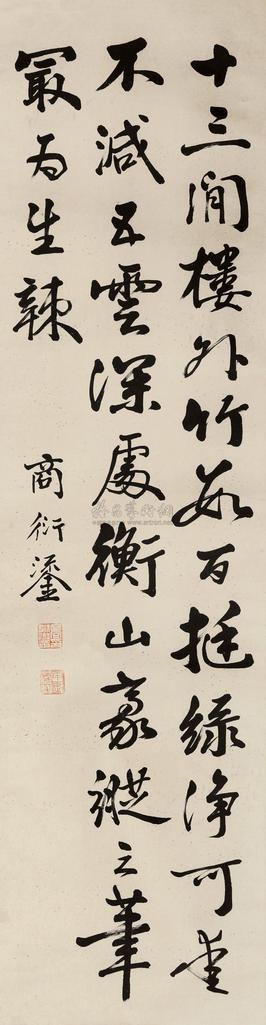 十三間樓外竹數百挺綠淨可愛
不減五雲深處衡山豪縱之筆
最為生辣
商衍鎏